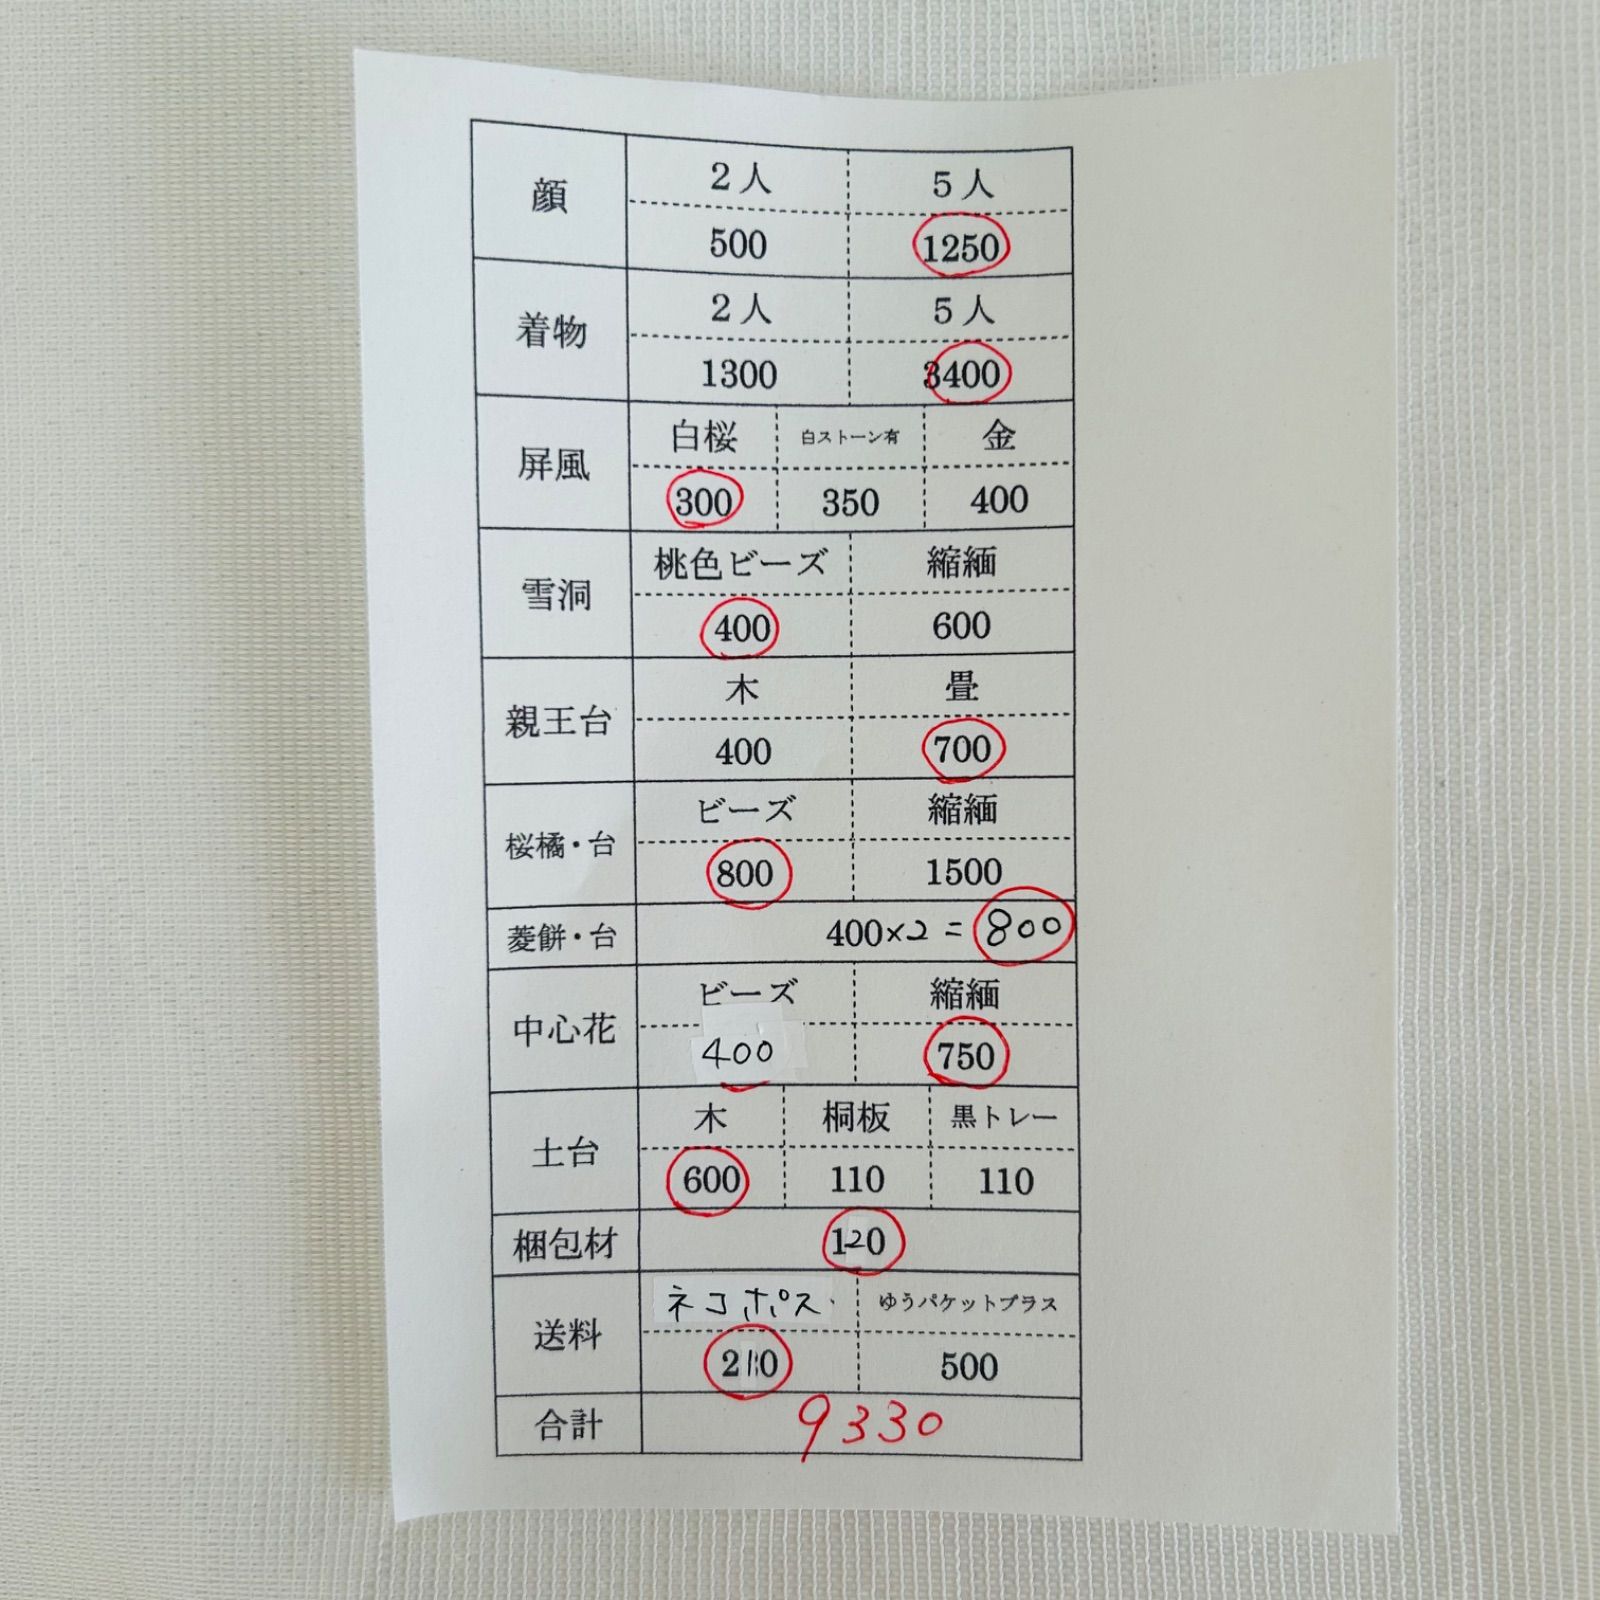 顔 2人 5人
500 1250
着物 2人 5人
1300 3400
屏風 白桜 白ストーン有 金
300 350 400
雪洞 桃色ビーズ 縮緬
400 600
親王台 木 畳
400 700
桜橘・台 ビーズ 縮緬
800 1500
菱餅・台 400×2=800
中心花 ビーズ 縮緬
400 750
土台 木 桐板 黒トレー
600 110 110
梱包材 120
送料 ネコポス ゆうパケットプラス
210 500
合計 9330